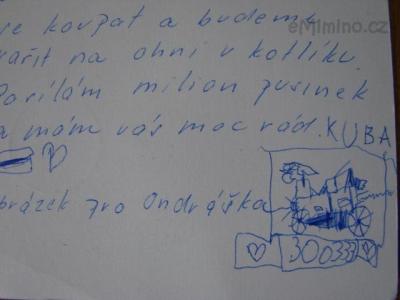 eMimino.cz
se koupat a budeme
vařit na ohni v kotlíku.
Posílám milion pusinek
a mám vás moc rád. KUBA
obrázek pro Ondráška
300333